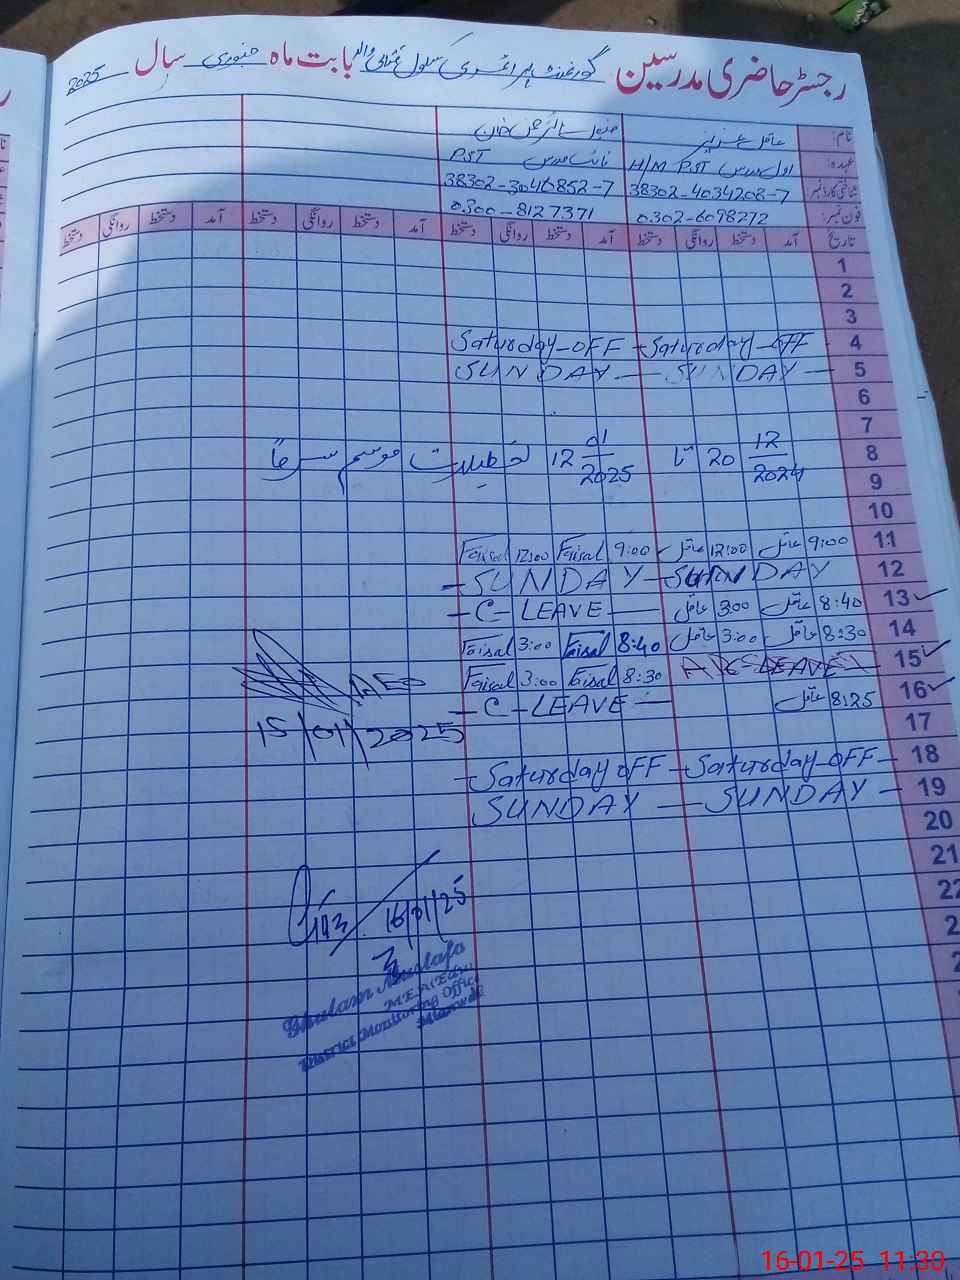 رجسٹر حاضری مدرسین گورنمنٹ پرائمری سکول بابت ماہ جنوری سال 2025
نام: عاقل عزیز
عہدہ: اول مدرس H/M PST نائب مدرس PST
شناختی کارڈ نمبر 38302-4034208-7 38302-3040852-7
فون نمبر: 0302-6098272 0300-8127371
تاریخ آمد دستخط روانگی دستخط آمد دستخط روانگی دستخط آمد دستخط روانگی دستخط آمد دستخط روانگی دستخط
1
2
3
4 Saturday-OFF Saturday-OFF
5 SUNDAY SUNDAY
6
7
8 12/2024 20 تا 01/2025 12 تعطیلات موسم سرما
9
10
11 9:00 عاقل 12:00 عاقل 9:00 Faisal 12:00 Faisal
12 SUNDAY SUNDAY
13 8:40 عاقل 3:00 عاقل C-LEAVE
14 8:30 عاقل 3:00 عاقل 8:40 Faisal 3:00 Faisal
15 LEAVE 8:30 Faisal 3:00 Faisal
16 8:25 عاقل C-LEAVE
17
18 Saturday-OFF Saturday OFF
19 SUNDAY SUNDAY
20
21
22
AEO
15/01/2025
16/01/25
Ghulam Mustafa
M.E.A (Edu)
District Monitoring Office
Mianwali
16-01-25 11:30